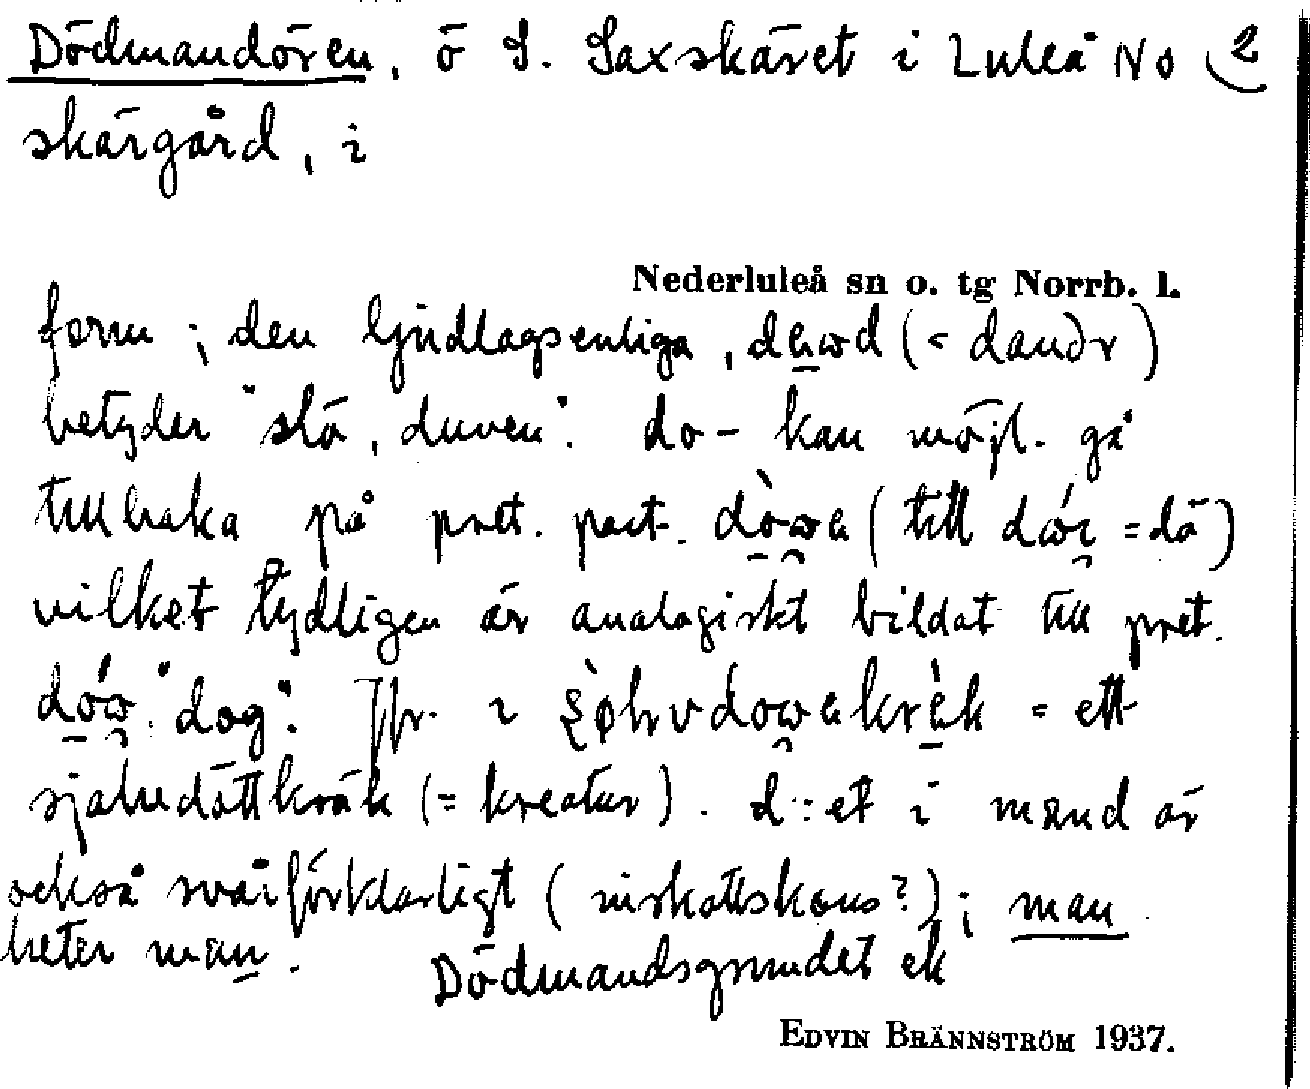 Dödmandören, ö S. Saxskäret i Luleå No 2
skärgård, i
Nederluleå sn o. tg Norrb. l.
form; den ljudlagsenliga, (= dauðr)
betyder "slö, duven". do- kan möjl. gå
tillbaka på pret. part. (till = dö)
vilket tydligen är analogiskt bildat till pret.
"dog". Jfr. = ett
självdöttkräk (= kreatur). d:et i mand är
också svårförklarligt (inskottskons?); man
heter man. Dödmandsgrundet ek
EDVIN BRÄNNSTRÖM 1937.